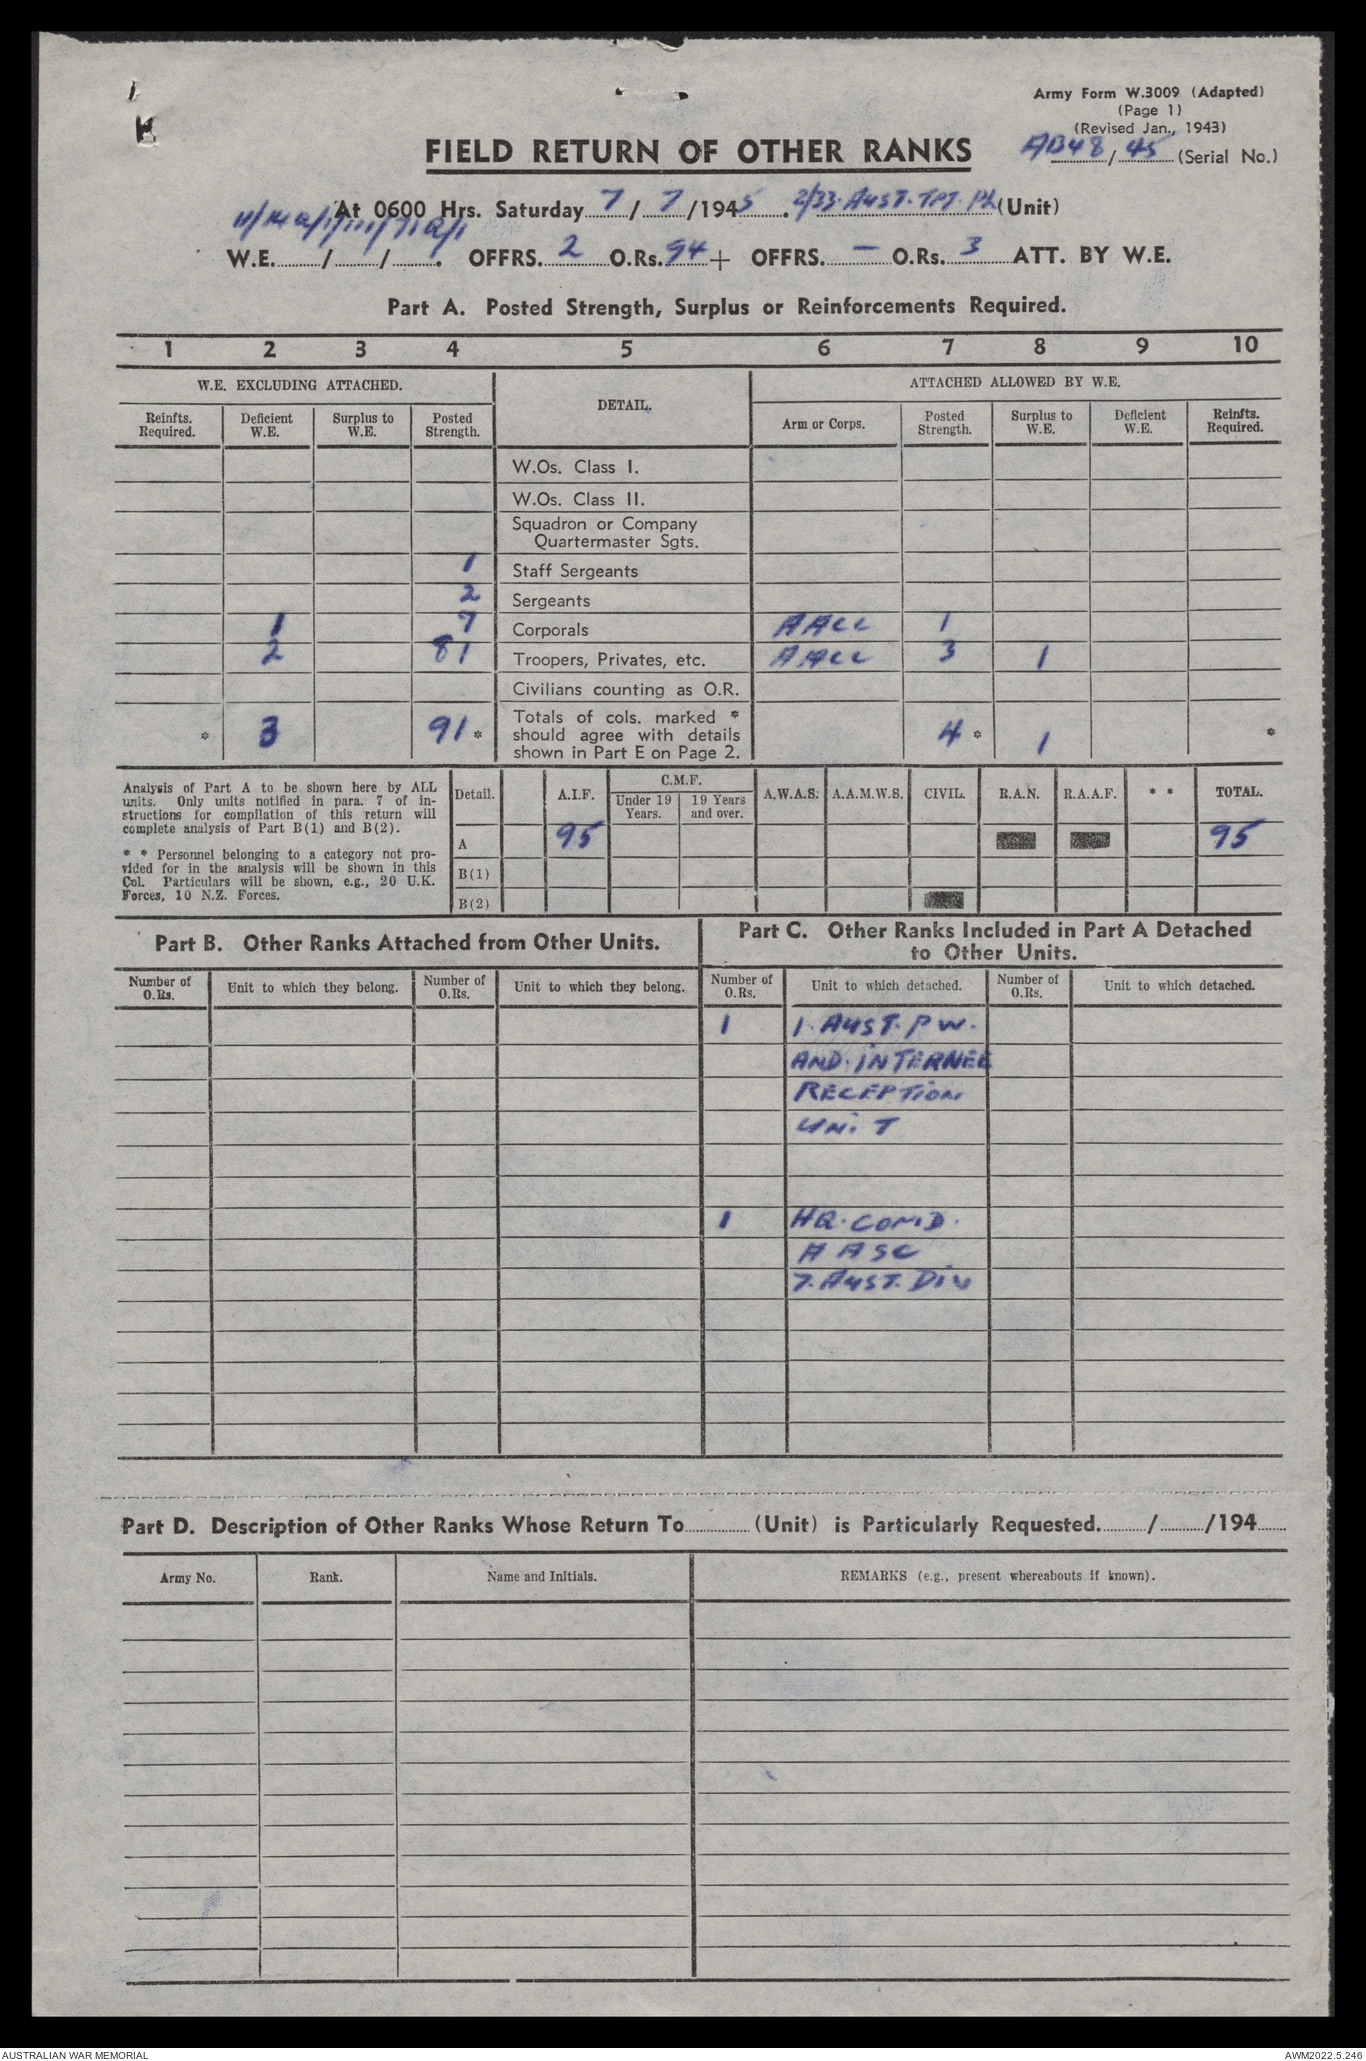 Army Form W.3009 (Adapted)
(Page 1)
(Revised Jan., 1943)
FIELD RETURN OF OTHER RANKS
AB48/45 (Serial No.)
At 0600 Hrs. Saturday 7/7/1945. 2/33. AUST. TPT. PL (Unit)
W.E. / / . OFFRS. 2 O.Rs. 94 + OFFRS. — O.Rs. 3 ATT. BY W.E.
Part A. Posted Strength, Surplus or Reinforcements Required.
1 2 3 4 5 6 7 8 9 10
W.E. EXCLUDING ATTACHED. DETAIL. ATTACHED ALLOWED BY W.E.
Reinfts. Required. Deficient W.E. Surplus to W.E. Posted Strength. Arm or Corps. Posted Strength. Surplus to W.E. Deficient W.E. Reinfts. Required.
W.Os. Class I.
W.Os. Class II.
Squadron or Company
Quartermaster Sgts.
1 Staff Sergeants
2 Sergeants
1 7 Corporals AACC 1
2 81 Troopers, Privates, etc. AACC 3 1
Civilians counting as O.R.
Totals of cols. marked *
* 3 91 * should agree with details 4 * 1 *
shown in Part E on Page 2.
Analysis of Part A to be shown here by ALL
units. Only units notified in para. 7 of in-
structions for compilation of this return will
complete analysis of Part B(1) and B(2).
* * Personnel belonging to a category not pro-
vided for in the analysis will be shown in this
Col. Particulars will be shown, e.g., 20 U.K.
Forces, 10 N.Z. Forces.
Detail. A.I.F. C.M.F. A.W.A.S. A.A.M.W.S. CIVIL. R.A.N. R.A.A.F. * * TOTAL.
Under 19 Years. 19 Years and over.
A 95 95
B(1)
B(2)
Part B. Other Ranks Attached from Other Units.
Number of O.Rs. Unit to which they belong. Number of O.Rs. Unit to which they belong.
Part C. Other Ranks Included in Part A Detached
to Other Units.
Number of O.Rs. Unit to which detached. Number of O.Rs. Unit to which detached.
1 1. AUST. P W.
AND. INTERNEE
RECEPTION
UNIT
1 HQ. COMD.
A A S C
7. AUST. DIV
Part D. Description of Other Ranks Whose Return To (Unit) is Particularly Requested. / /194
Army No. Rank. Name and Initials. REMARKS (e.g., present whereabouts if known).
AUSTRALIAN WAR MEMORIAL AWM2022.5.246